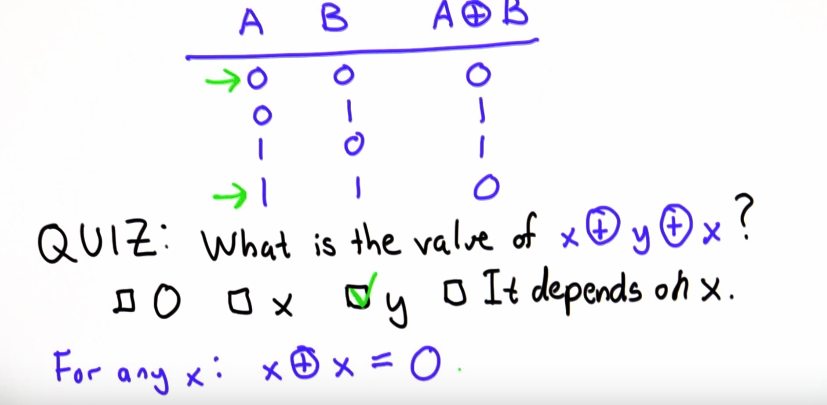 A B A ⊕ B
→0 0 0
0 1 1
1 0 1
→1 1 0
QUIZ: What is the value of x ⊕ y ⊕ x ?
□ 0 □ x ☑ y □ It depends on x.
For any x: x ⊕ x = 0.